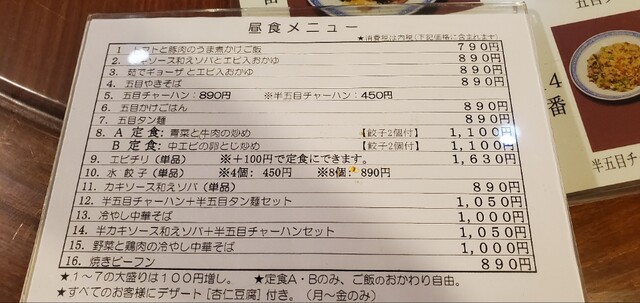 昼食メニュー
★消費税は内税（下記価格に含まれます）
1 トマトと豚肉のうま煮かけご飯 790円
2. カキソース和えソバとエビ入おかゆ 890円
3. 茹でギョーザとエビ入おかゆ 890円
4. 五目やきそば 890円
5. 五目チャーハン：890円 ※半五目チャーハン：450円
6. 五目かけごはん 890円
7. 五目タン麺 890円
8. A 定食：青菜と牛肉の炒め 【餃子2個付】 1,100円
B 定食：中エビの卵とじ炒め 【餃子2個付】 1,100円
9. エビチリ（単品） ※＋100円で定食にできます。 1,630円
10. 水 餃子（単品） ※4個：450円 ※8個：890円
11. カキソース和えソバ（単品） 890円
12. 半五目チャーハン＋半五目タン麺セット 1,050円
13. 冷やし中華そば 1,000円
14. 半カキソース和えソバ＋半五目チャーハンセット 1,050円
15. 野菜と鶏肉の冷やし中華そば 1,000円
16. 焼きビーフン 890円
★1～7の大盛りは100円増し。 ★定食A・Bのみ、ご飯のおかわり自由。
★すべてのお客様にデザート［杏仁豆腐］付き。（月～金のみ）
番
4
番
半五目チャ